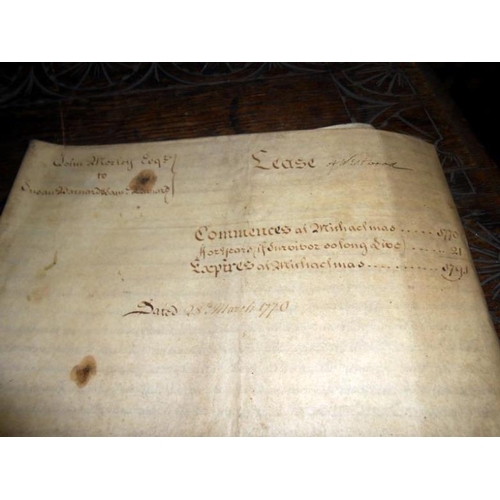 John Morley Esqr.
to
Susan Barnard
Lease
Commences at Michaelmas ..... 1770
for Years, if Survivor so long Live 21
Expires at Michaelmas ..... 1791
Dated 28th March 1770